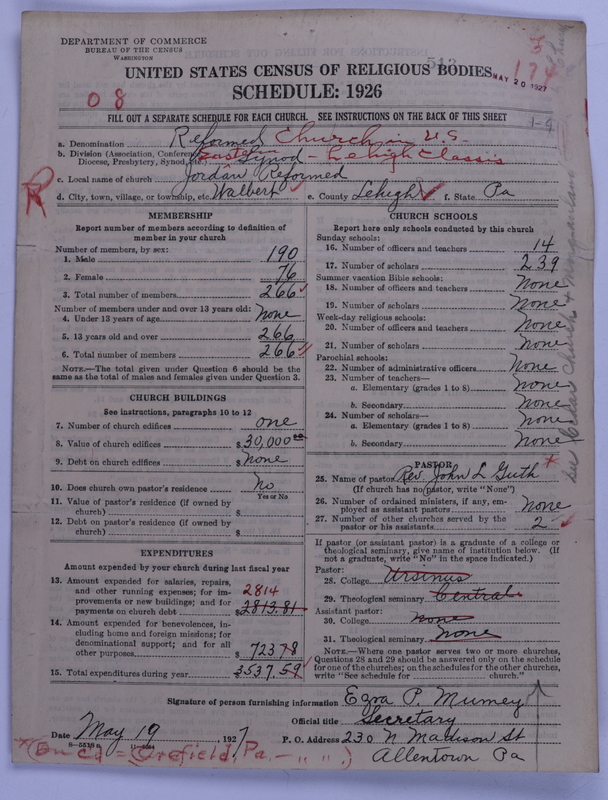 DEPARTMENT OF COMMERCE
BUREAU OF THE CENSUS
WASHINGTON
MAY 20 1927
174
UNITED STATES CENSUS OF RELIGIOUS BODIES
SCHEDULE: 1926
08
FILL OUT A SEPARATE SCHEDULE FOR EACH CHURCH. SEE INSTRUCTIONS ON THE BACK OF THIS SHEET
a. Denomination Reformed Church in U.S.
b. Division (Association, Conference, Diocese, Presbytery, Synod, etc.) Eastern Synod - Lehigh Classis
c. Local name of church Jordan Reformed
d. City, town, village, or township, etc. Walbert e. County Lehigh f. State Pa
MEMBERSHIP
Report number of members according to definition of
member in your church
Number of members, by sex:
1. Male 190
2. Female 76
3. Total number of members 266
Number of members under and over 13 years old:
4. Under 13 years of age None
5. 13 years old and over 266
6. Total number of members 266
NOTE.—The total given under Question 6 should be
same as the total of males and females given under Question 3.
CHURCH BUILDINGS
See instructions, paragraphs 10 to 12
7. Number of church edifices one
8. Value of church edifices $30,000 00
9. Debt on church edifices $None
10. Does church own pastor's residence No
Yes or No
11. Value of pastor's residence (if owned by
church) $
12. Debt on pastor's residence (if owned by
church) $
EXPENDITURES
Amount expended by your church during last fiscal year
13. Amount expended for salaries, repairs,
and other running expenses; for im-
provements or new buildings; and for 2814
payments on church debt $2813.81
14. Amount expended for benevolences, in-
cluding home and foreign missions; for
denominational support; and for all
other purposes $723 78
15. Total expenditures during year $3537.59
CHURCH SCHOOLS
Report here only schools conducted by this church
Sunday schools:
16. Number of officers and teachers 14
17. Number of scholars 239
Summer vacation Bible schools:
18. Number of officers and teachers None
19. Number of scholars None
Week-day religious schools:
20. Number of officers and teachers None
21. Number of scholars None
Parochial schools:
22. Number of administrative officers None
23. Number of teachers—
a. Elementary (grades 1 to 8) None
b. Secondary None
24. Number of scholars—
a. Elementary (grades 1 to 8) None
b. Secondary None
PASTOR
25. Name of pastor Rev. John L Guth
(If church has no pastor, write "None")
26. Number of ordained ministers, if any, em-
ployed as assistant pastors None
27. Number of other churches served by the
pastor or his assistants 2
If pastor (or assistant pastor) is a graduate of a college or
theological seminary, give name of institution below. (If
not a graduate, write "No" in the space indicated.)
Pastor:
28. College Ursinus
29. Theological seminary Central
Assistant pastor:
30. College none
31. Theological seminary None
NOTE.—Where one pastor serves two or more churches,
Questions 28 and 29 should be answered only on the schedule
for one of the churches; on the schedules for the other churches,
write "See schedule for church."
Signature of person furnishing information Ezra P. Mumey
Official title Secretary
Date May 19, 1927 P. O. Address 230 N Madison St
Allentown Pa